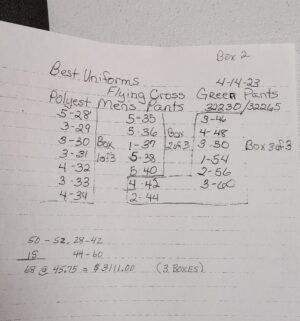 Box 2
Best Uniforms 4-14-23
Flying Cross Green Pants
Polyest Mens Pants 32230/32265
5-28 5-35 3-46
3-29 5-36 Box 4-48
3-30 Box 1-37 2 of 3 3-50 Box 3 of 3
3-31 1 of 3 5-38 1-54
4-32 5-40 2-56
3-33 4-42 3-60
4-34 2-44
50 - sz. 28-42
18 44-60
68 @ 45.75 = $3111.00 (3 BOXES)